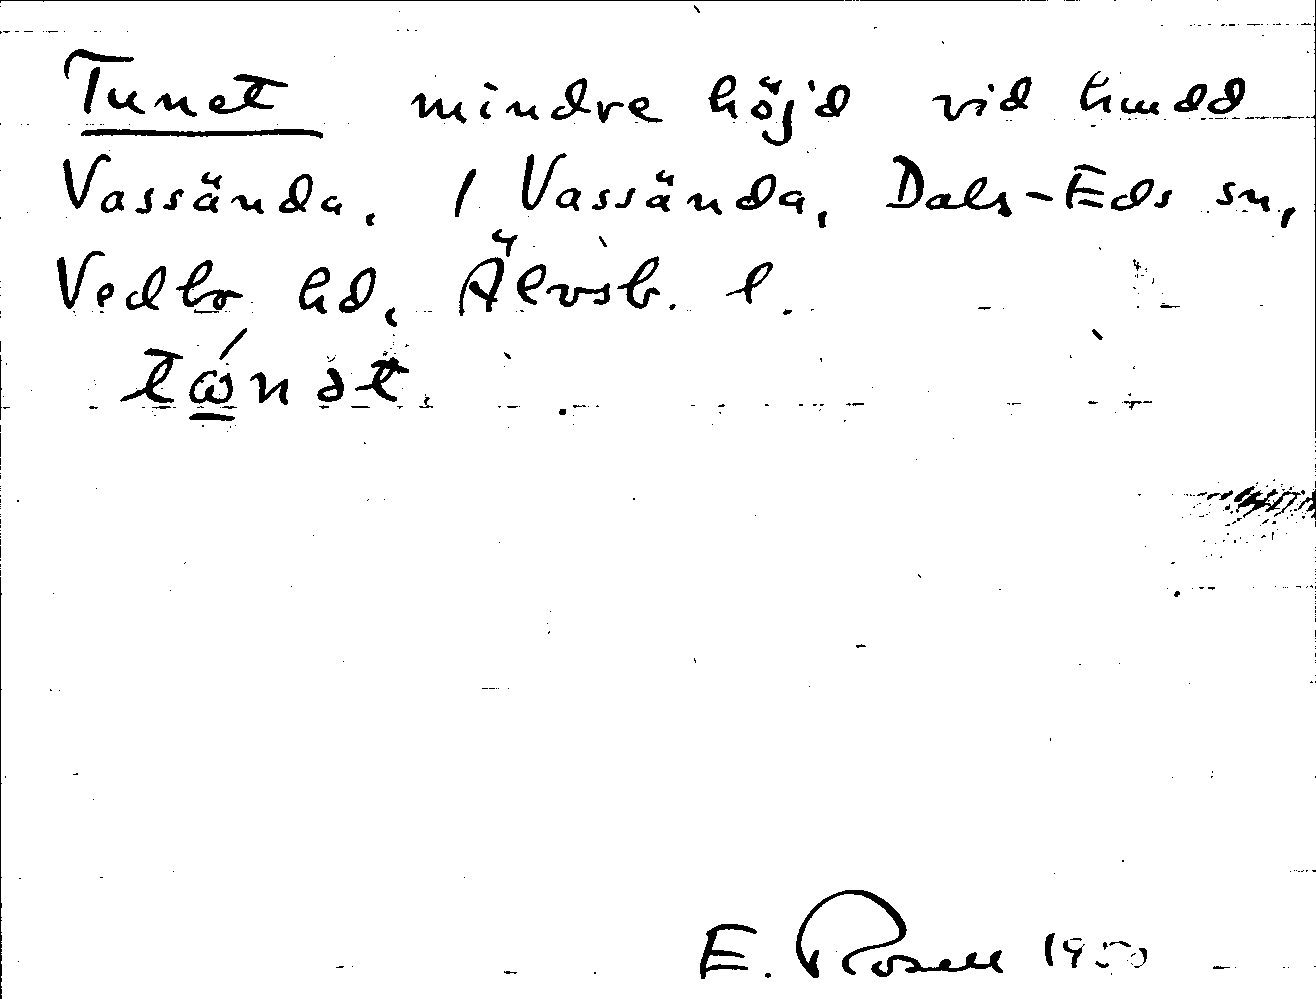 Tunet mindre höjd vid hmdd
Vassända, / Vassända, Dals-Eds sn,
Vedbo hd, Älvsb. l.
tώ̲nət.
E. Rosell 1950